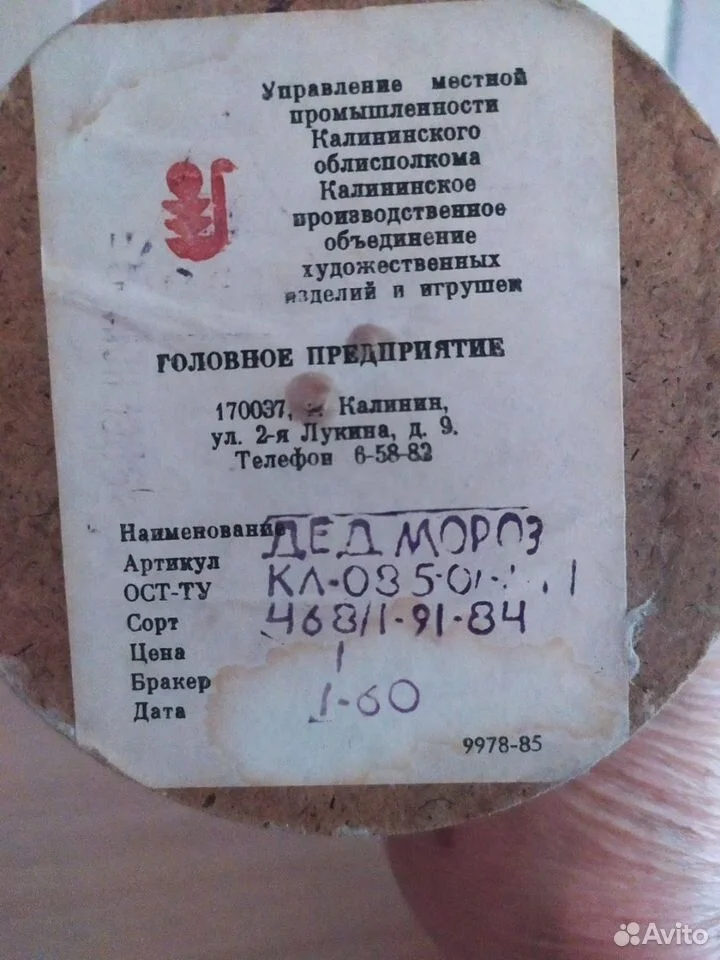 Управление местной
промышленности
Калининского
облисполкома
Калининское
производственное
объединение
художественных
изделий и игрушек
ГОЛОВНОЕ ПРЕДПРИЯТИЕ
170037, г. Калинин,
ул. 2-я Лукина, д. 9.
Телефон 6-58-82
Наименование ДЕД МОРОЗ
Артикул
ОСТ-ТУ
Сорт 468/1-91-84
Цена 1
Бракер
Дата 1-60
9978-85
Avito